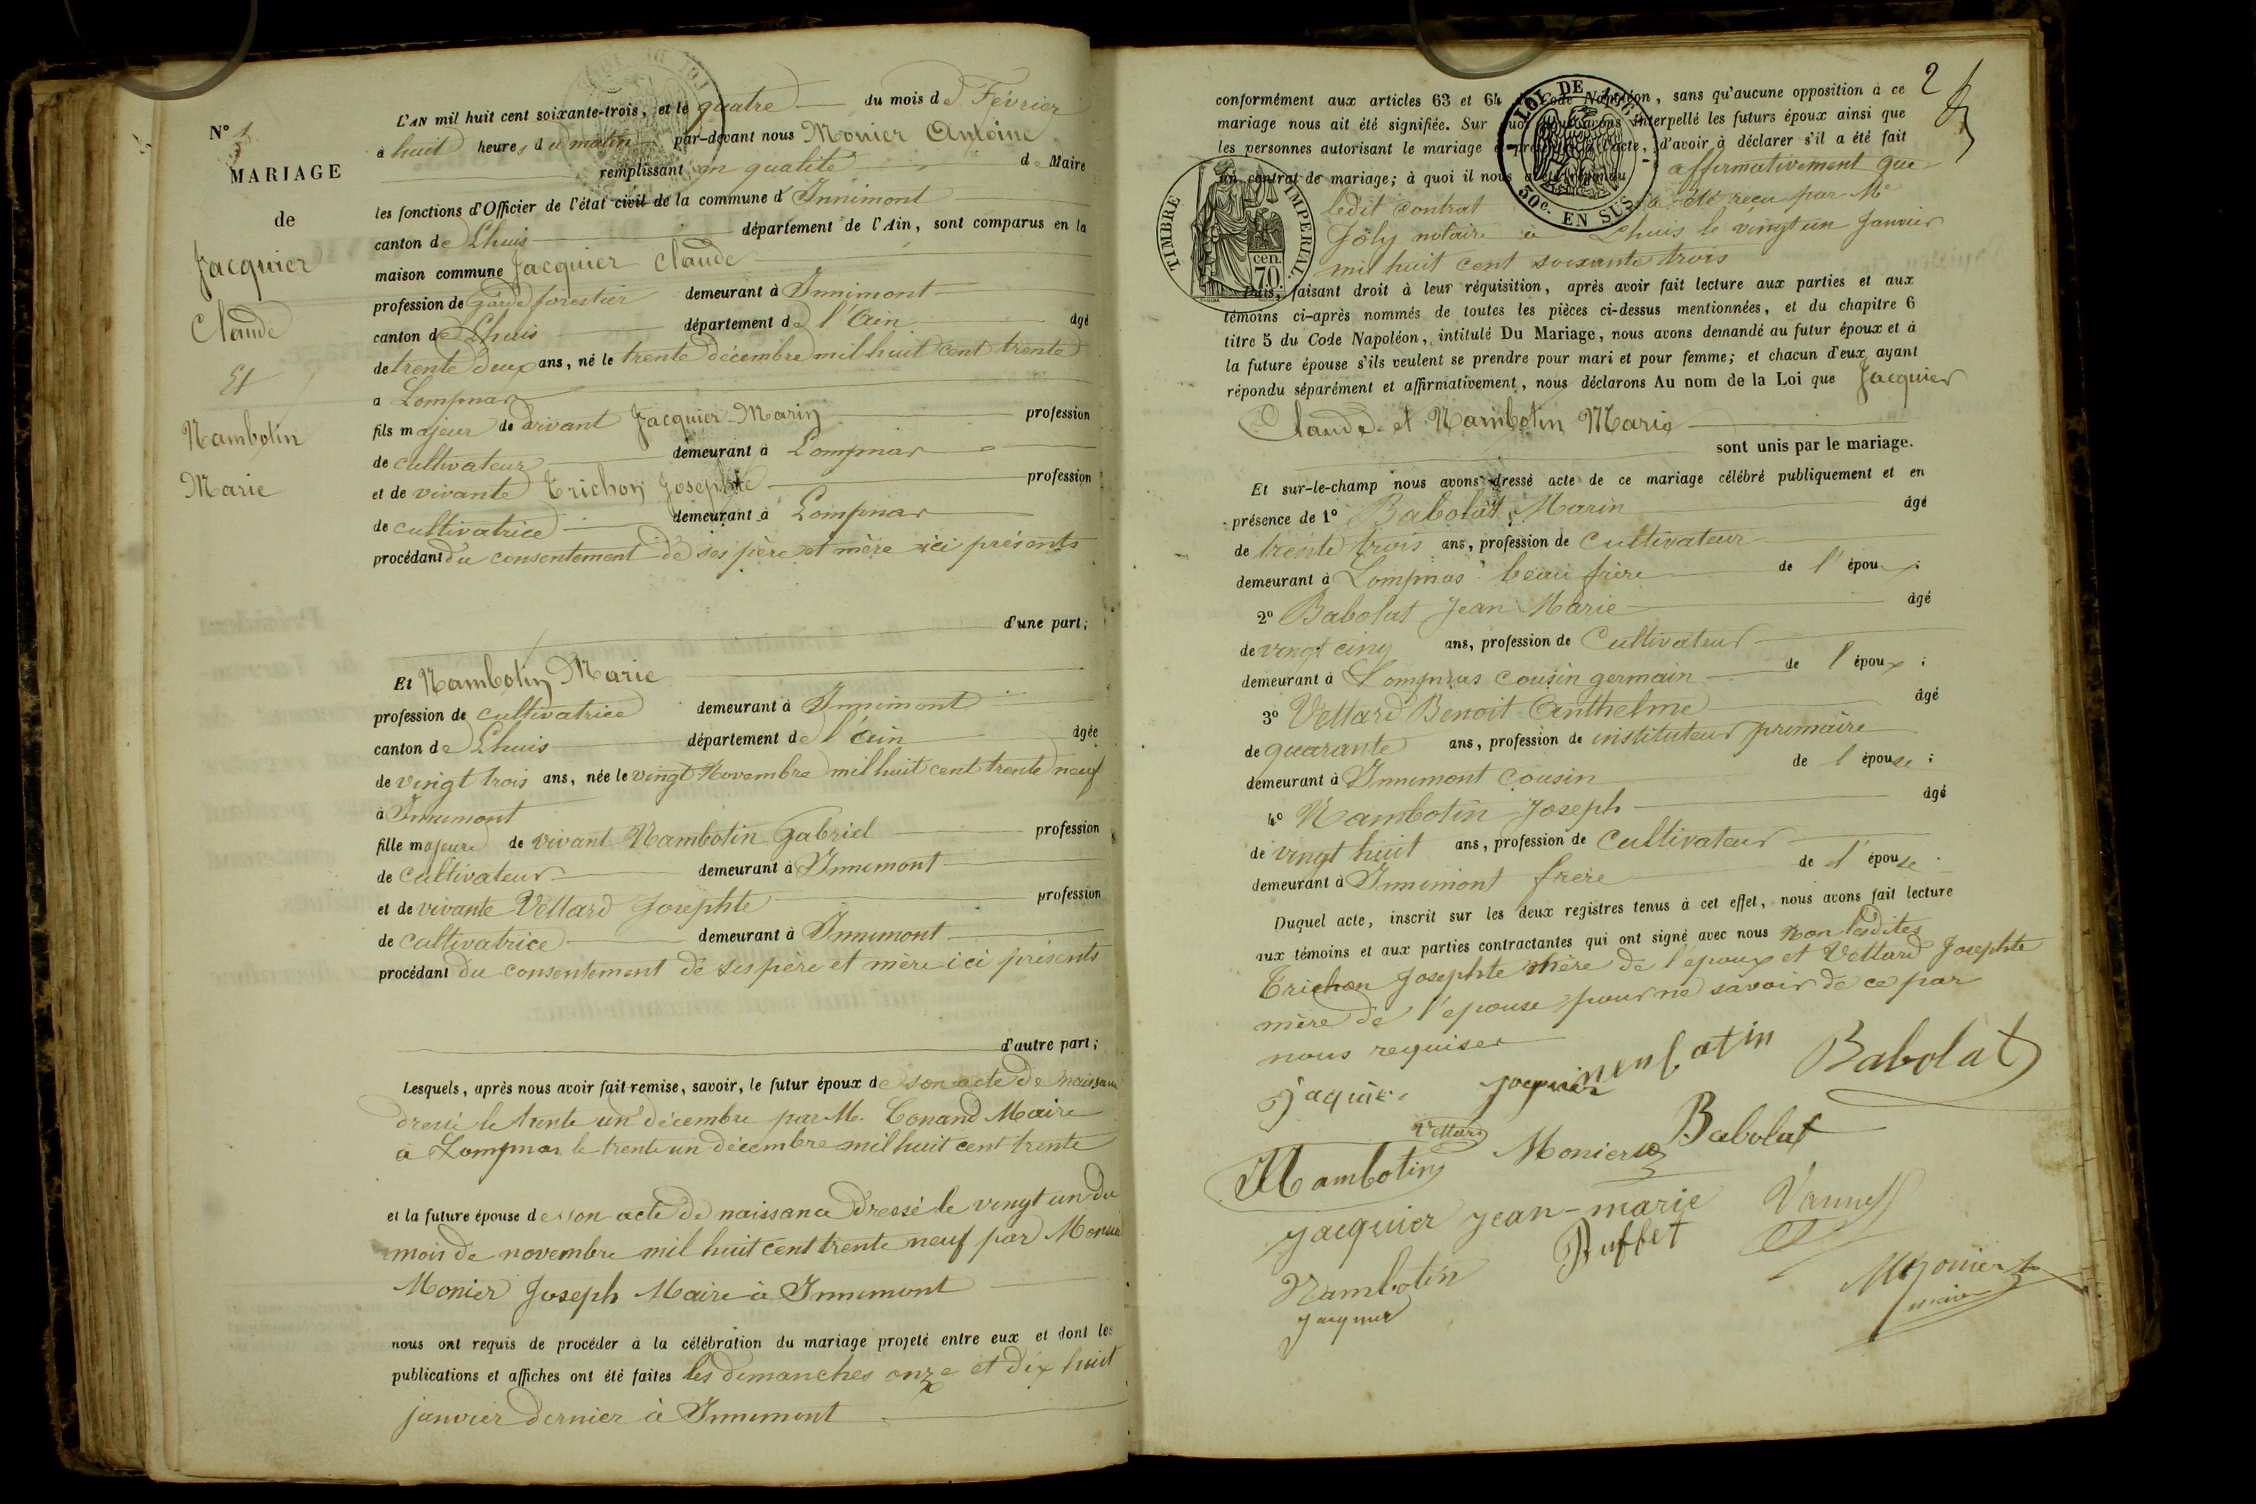 N° 1
MARIAGE
de
Jacquier
Claude
Et
Nambotin
Marie
L'AN mil huit cent soixante-trois, et le quatre du mois de Février
à huit heures du matin par-devant nous Monier Antoine
remplissant en qualité de Maire
les fonctions d'Officier de l'état civil de la commune d'Innimont
canton de Lhuis département de l'Ain, sont comparus en la
maison commune Jacquier Claude
profession de garde forestier demeurant à Innimont
canton de Lhuis département de l'Ain âgé
de trente deux ans, né le trente décembre mil huit cent trente
à Lompnas
fils majeur de vivant Jacquier Marin profession
de cultivateur demeurant à Lompnas
et de vivante Trichon Josephte profession
de cultivatrice demeurant à Lompnas
procédant du consentement de ses père et mère ici présents
d'une part;
Et Nambotin Marie
profession de cultivatrice demeurant à Innimont
canton de Lhuis département de l'Ain âgée
de vingt trois ans, née le vingt Novembre mil huit cent trente neuf
à Innimont
fille majeure de vivant Nambotin Gabriel profession
de cultivateur demeurant à Innimont
et de vivante Vettard Josephte profession
de cultivatrice demeurant à Innimont
procédant du consentement de ses père et mère ici présents
d'autre part;
Lesquels, après nous avoir fait remise, savoir, le futur époux de son acte de naissance
dressé le trente un décembre par M. Conand Maire
à Lompnas le trente un décembre mil huit cent trente
et la future épouse de son acte de naissance dressé le vingt un du
mois de novembre mil huit cent trente neuf par
Monier Joseph Maire à Innimont
nous ont requis de procéder à la célébration du mariage projeté entre eux et dont les
publications et affiches ont été faites les dimanches onze et dix huit
janvier dernier à Innimont
2
conformément aux articles 63 et 64 du Code Napoléon, sans qu'aucune opposition à ce
mariage nous ait été signifiée. Sur quoi nous avons interpellé les futurs époux ainsi que
les personnes autorisant le mariage et présentes à l'acte, d'avoir à déclarer s'il a été fait
un contrat de mariage; à quoi il nous a été répondu affirmativement que
ledit contrat a été reçu par Me
Joly notaire à Lhuis le vingt un Janvier
mil huit cent soixante trois
LOI DE 1862
50c. EN SUS
TIMBRE IMPERIAL
70 cen.
Puis, faisant droit à leur réquisition, après avoir fait lecture aux parties et aux
témoins ci-après nommés de toutes les pièces ci-dessus mentionnées, et du chapitre 6
titre 5 du Code Napoléon, intitulé Du Mariage, nous avons demandé au futur époux et à
la future épouse s'ils veulent se prendre pour mari et pour femme; et chacun d'eux ayant
répondu séparément et affirmativement, nous déclarons Au nom de la Loi que Jacquier
Claude et Nambotin Marie
sont unis par le mariage.
Et sur-le-champ nous avons dressé acte de ce mariage célébré publiquement et en
présence de 1° Babolat Marin âgé
de trente trois ans, profession de Cultivateur
demeurant à Lompnas beau frère de l'époux;
2° Babolat Jean Marie âgé
de vingt cinq ans, profession de Cultivateur
demeurant à Lompnas cousin germain de l'époux;
3° Vettard Benoit Anthelme âgé
de quarante ans, profession de instituteur primaire
demeurant à Innimont cousin de l'épouse;
4° Nambotin Joseph âgé
de vingt huit ans, profession de Cultivateur
demeurant à Innimont frère de l'épouse
Duquel acte, inscrit sur les deux registres tenus à cet effet, nous avons fait lecture
aux témoins et aux parties contractantes qui ont signé avec nous non lesdites
Trichon Josephte mère de l'époux et Vettard Josephte
mère de l'épouse pour ne savoir de ce par
nous requises
Babolat
Vettard
Nambotin Monier Babolat
Jacquier Jean-marie
Buffet
Nambotin
Jacquier
Monier
maire